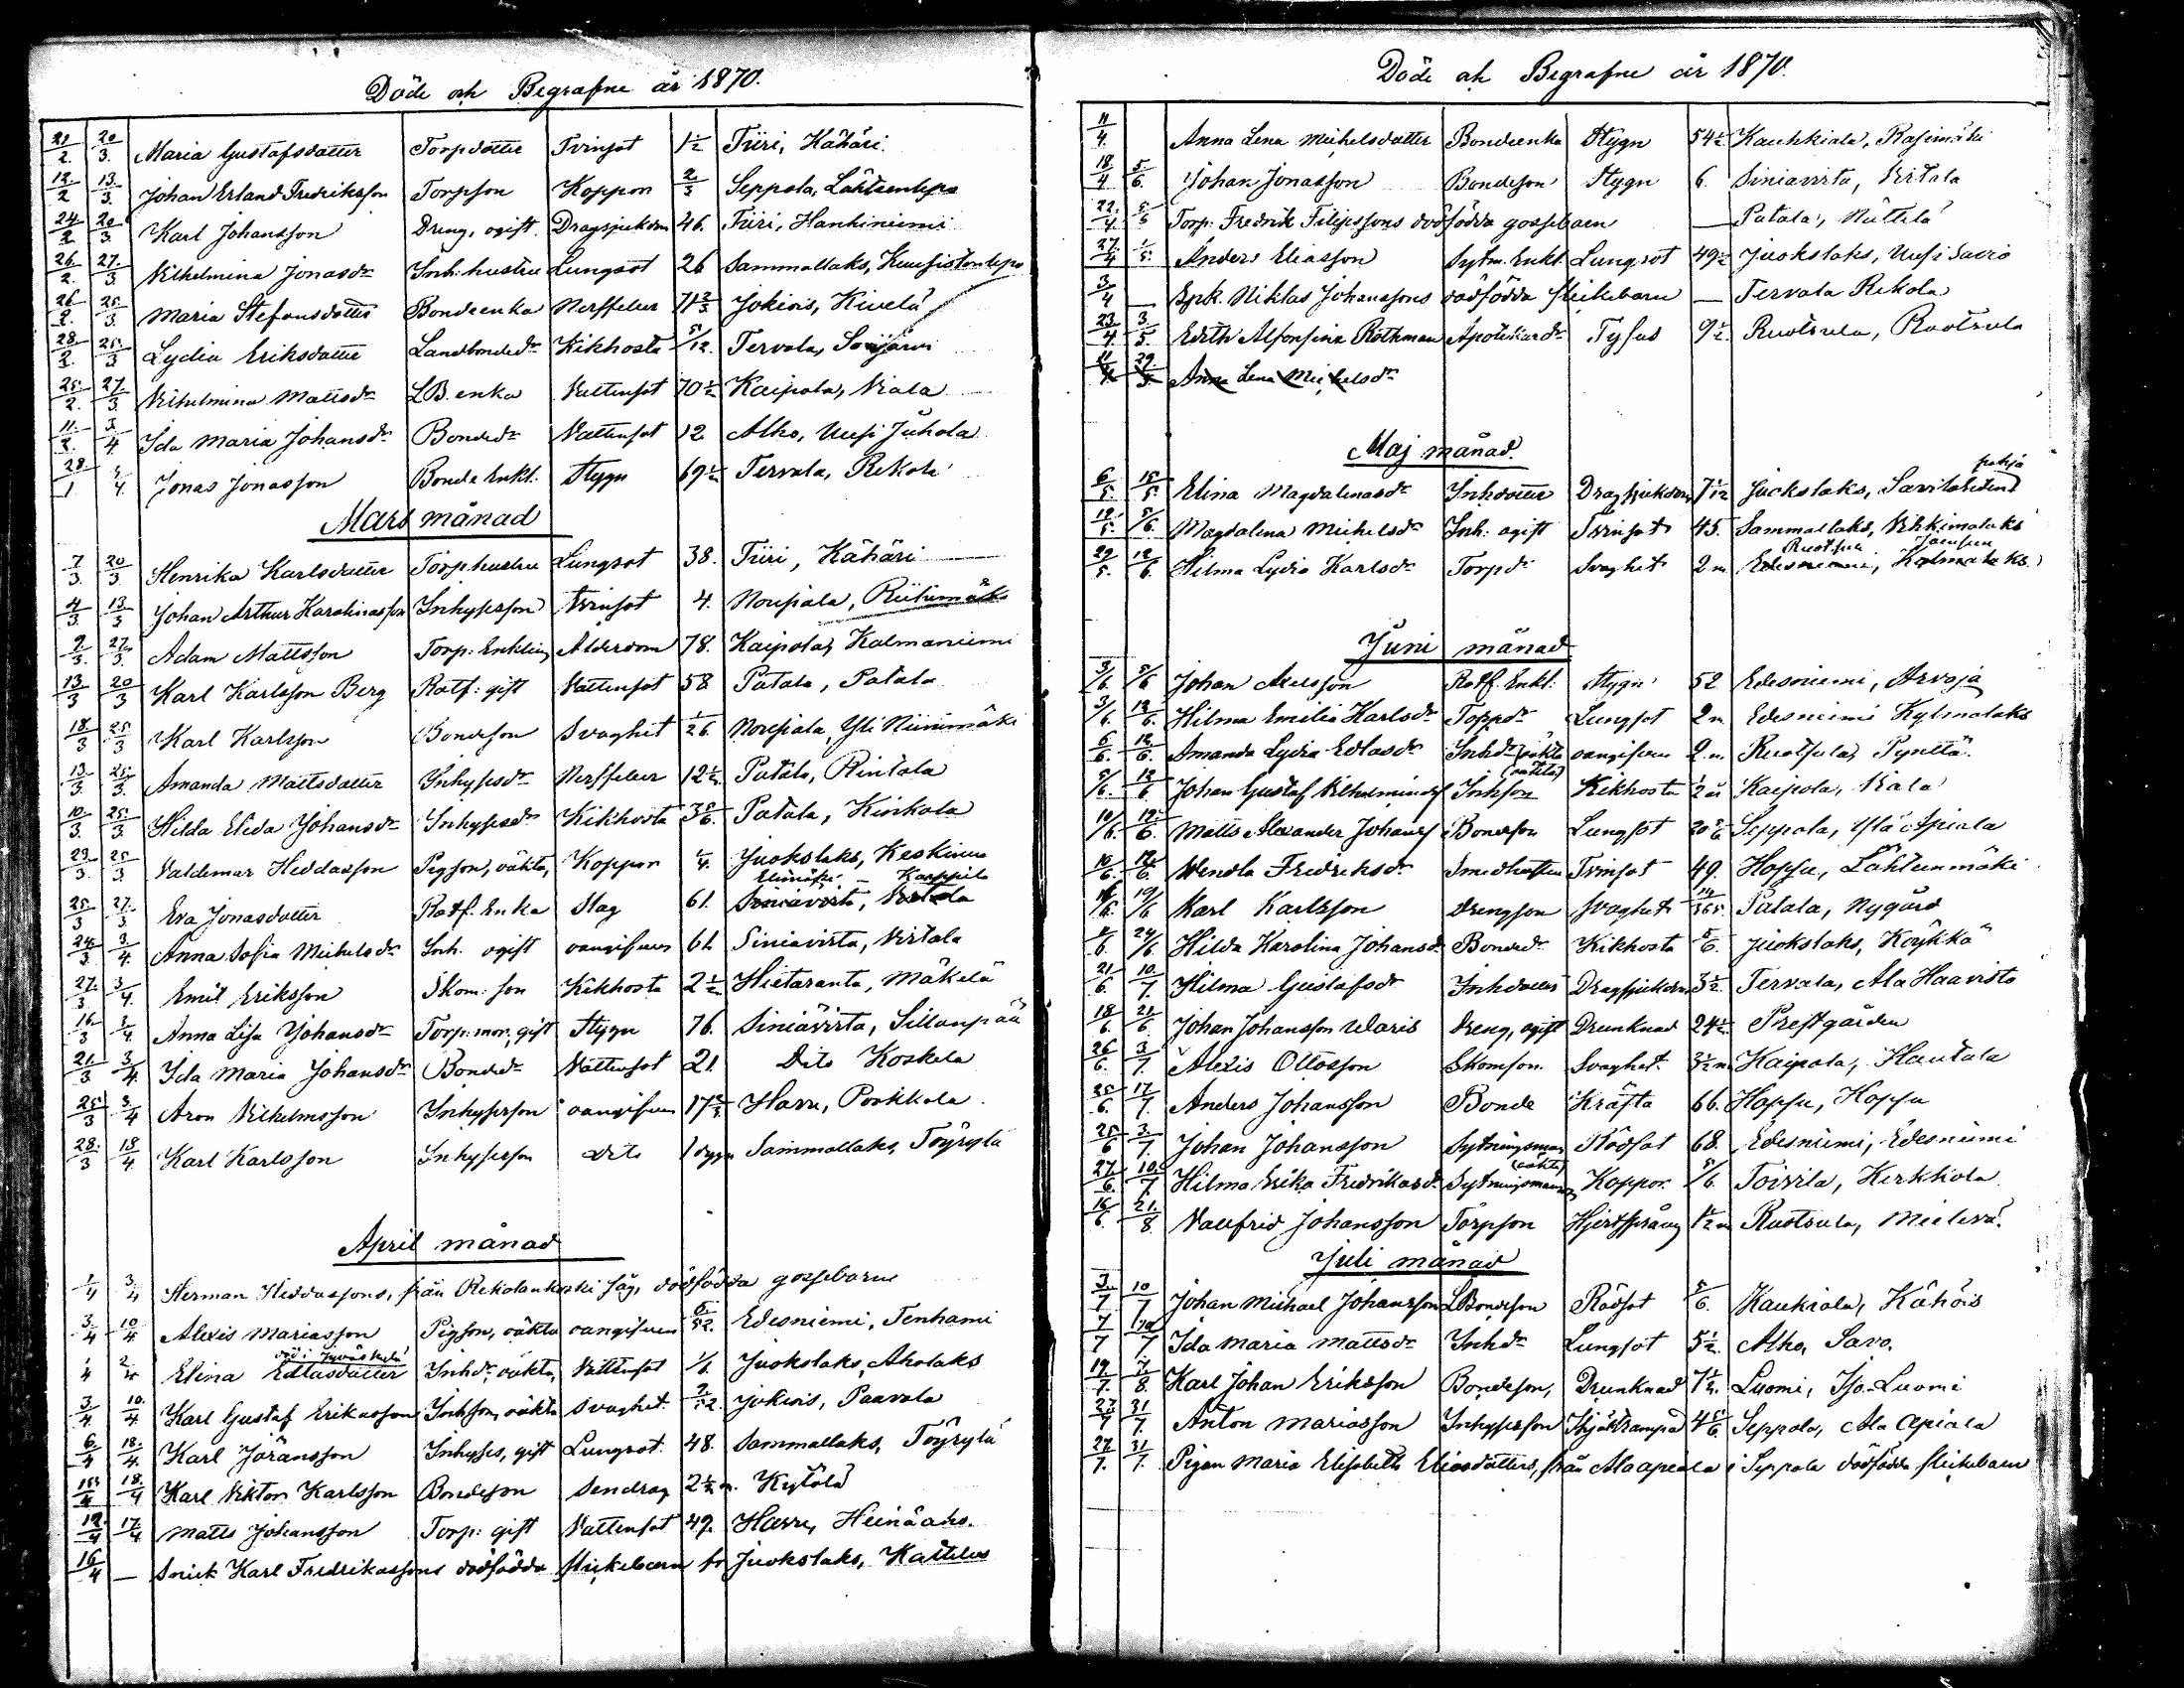 Döde och Begrafne år 1870.
21/2. 20/3. Maria Gustafsdotter Torpdotter Tvinsot 1½ Tiiri, Kähäri.
12/2 13/3. Johan Erland Fredriksson Torpson Koppor 2/3 Seppola, Lähteenlepo
24/2 20/3. Karl Johansson Dräng, ogift. Dragsjukdom 46. Tiiri, Hankiniemi
26/2. 27/3 Vilhelmina Jonasdr Inh: hustru Lungsot 26 Sammallaks, Kuusistonlepo
26/2. 25/3. Maria Stefansdotter Bondeenka Nerffeber 71 2/3 Jokiois, Kivelä
28/2. 25/3 Lydia Eriksdotter Landbondedr Kikhosta 5/12. Tervala, Soijärvi
25/2. 27/3. Vilhelmina Mattsdr LB. enka Vattensot 70½ Kaipola, Viala
11/2. 3/4 Ida Maria Johansdr Bondedr Vattensot 12 Alho, Uusi Juhola
28/1 3/4. Jonas Jonasson Bonde Enkl. Stygn 69½ Tervala, Rekola
Mars månad
7/3. 20/3 Henrika Karlsdotter Torp.hustru Lungsot 38. Tiiri, Kähäri
4/3. 13/3 Johan Arthur Karolinasson Inhysesson Tvinsot 4. Noupiala, Riihimäki
2/3. 27/3. Adam Mattsson Torp: Enkling Ålderdom 78. Kaipola, Kalmaniemi
13/3 20/3 Karl Karlsson Berg Rotf: gift Vattensot 58 Patala, Patala
18/3 25/3 Karl Karlsson Bondeson Svaghet 1/26. Noupiala, Yli Niinimäki
13/3. 25/3. Amanda Mattsdotter Inhysesdr Nerffeber 12½ Patala, Rintala
10/3. 25/3 Hilda Elida Johansdr Inhysesdr Kikhosta 3 5/6. Patala, Kinkola
23/3. 25/3 Valdemar Heddasson Pigson, oäkta, Koppor 1/4. Juokslaks, Keskinen
Elimäki – Kaappila
25/3 27/3 Eva Jonasdotter Rotf. Enka Slag 61. Siniävirta, Virtala
24/3 3/4. Anna Sofia Michelsdr Inh. ogift oangifven 61 Siniävirta, Virtala
27/3 3/4. Emil Eriksson Skom: son Kikhosta 2½ Hietaranta, Mäkelä
16/3 3/4. Anna Lisa Johansdr Torp: mor, gift Stygn 76. Siniävirta, Sillanpää
21/3 3/4 Ida Maria Johansdr Bondedr Vattensot 21. Dito Koskela
25/3 3/4 Aron Vilhelmsson Inhysesson oangifven 17 2/3 Havu, Poikkola.
28/3 18/4 Karl Karlsson Inhysesson dito 1 dygn Sammallaks, Töyrylä
April månad
1/4 3/4 Herman Heddassons, från Rekolankoski såg, dödfödda gossebarn
3/4 10/4 Alexis Mariasson Pigson, oäkta oangifven 6/52. Edesniemi, Tenhami
död i Jyväskylä
1/4 2/4 Elina Edlasdotter Inhdr oäkta, Vattensot 1/6. Juokslaks, Aholaks
3/4 10/4. Karl Gustaf Erikasson Inhson, oäkta Svaghet 2/52. Jokiois, Paavola
6/4 18/4. Karl Jöransson Inhyses, gift Lungsot. 48. Sammallaks, Töyrylä
15/4 18/4 Karl Viktor Karlsson Bondeson Sendrag 2½ m. Kytölä
12/4 17/4 Matts Johansson Torp: gift Vattensot 49. Havu, Heinäaho.
16/4 — Snick Karl Fredrikassons dödfödda flickebarn fr Juokslaks, Kattelus
Döde och Begrafne år 1870.
11/4. Anna Lena Michelsdotter Bondeenka Stygn 54½ Kauhkiala, Rasimäki
18/4 5/6. Johan Jonasson Bondeson Stygn 6. Siniävirta, Virtala
22/4 5/5 Torp: Fredrik Filipssons dödfödda gossebarn — Patala, Nuttila
27/4 1/5. Anders Eliasson Sytn. Enkl. Lungsot 49½ Juokslaks, Uusi Savio
3/4 — Spk. Niklas Johanssons dödfödda flickebarn — Tervala Rekola
23/4 3/5. Edith Alfonsina Rothman Apotekaredr Tyfus 9½. Ruotsula, Ruotsula
11/4. 29/5. Anna Lena Michelsdr
Maj månad.
6/5. 15/5. Elina Magdalenasdr Inhdotter Dragsjukdom 7 1/12 Juokslaks, Savilahden pohja
19/5. 5/6. Magdalena Michelsdr Inh: ogift Tvinsot 45. Sammallaks, Vihkimälaks
Ruotsula
29/5. 12/6. Hilma Lydia Karlsdr Torpdr Svaghet 2 m Edesniemi, Kylmälaks.
Juni månad
3/6. 5/6 Johan Axelsson Rotf. Enkl: Stygn 52 Edesniemi, Arvaja
3/6. 13/6. Hilma Emilia Karlsdr Torpdr Lungsot 2 m Edesniemi Kylmälaks
6/6. 12/6. Amanda Lydia Edlasdr Inhdr (oäkta oangifven 2 m. Ruotsula, Pynttä.
(oäkta)
5/6. 12/6 Johan Gustaf Vilhelminass Inhson Kikhosta ½ år Kaipola, Viala
10/6. 12/6. Matts Alexander Johanss Bondeson Lungsot 20 5/6 Seppola, Ylä Apiala
10/6. 12/6. Wendla Fredriksdr Smedhustru Tvinsot 49. Hopsu, Lähteenmäki
19/6 Karl Karlsson Drengson Svaghet 14/365. Patala, Nygård
24/6 Hilda Karolina Johansdr Bondedr Kikhosta 5/6. Juokslaks, Köykkä
21/6. 10/7. Hilma Gustafsdr Inhdotter Dragsjukdom 3½ Tervala, Ala Haavisto
18/6. 21/6. Johan Johansson Waris Dreng, ogift Drunknad 24½ Prestgården
26/6. 3/7. Alexis Ottosson Skomson. Svaghet. 3½ m Kaipola, Hautala
25/6. 17/7. Anders Johansson Bonde Kräfta 66. Hopsu, Hopsu
25/6 3/7. Johan Johansson Sytningsman Rödsot 68. Edesniemi, Edesniemi
(oäkta)
27/6. 10/7 Hilma Erika Fredrikasdr Sytningsmans Koppor. 5/6 Toivila, Kirkkola
16/6. 21/8. Valfrid Johansson Torpson Hjertsprång 1½ m Ruotsula, Mielevä.
Juli månad
3/7 10/7 Johan Michael Johansson LBondeson Rödsot 5/6. Kaukiala, Kähöis
7/7 10/7 Ida Maria Mattsdr Inhdr Lungsot 5½. Alho, Savo.
19/7. 7/8. Karl Johan Eriksson Bondeson, Drunknad 7½. Luomi, Iso-Luomi
27/7 31/7. Anton Mariasson Inhysesson Ihjältrampad 4 5/6. Seppola, Ala Apiala
27/7. 31/7. Pigan Maria Elisabeth Eliasdotters, från Alaapiala i Seppola dödfödda flickebarn